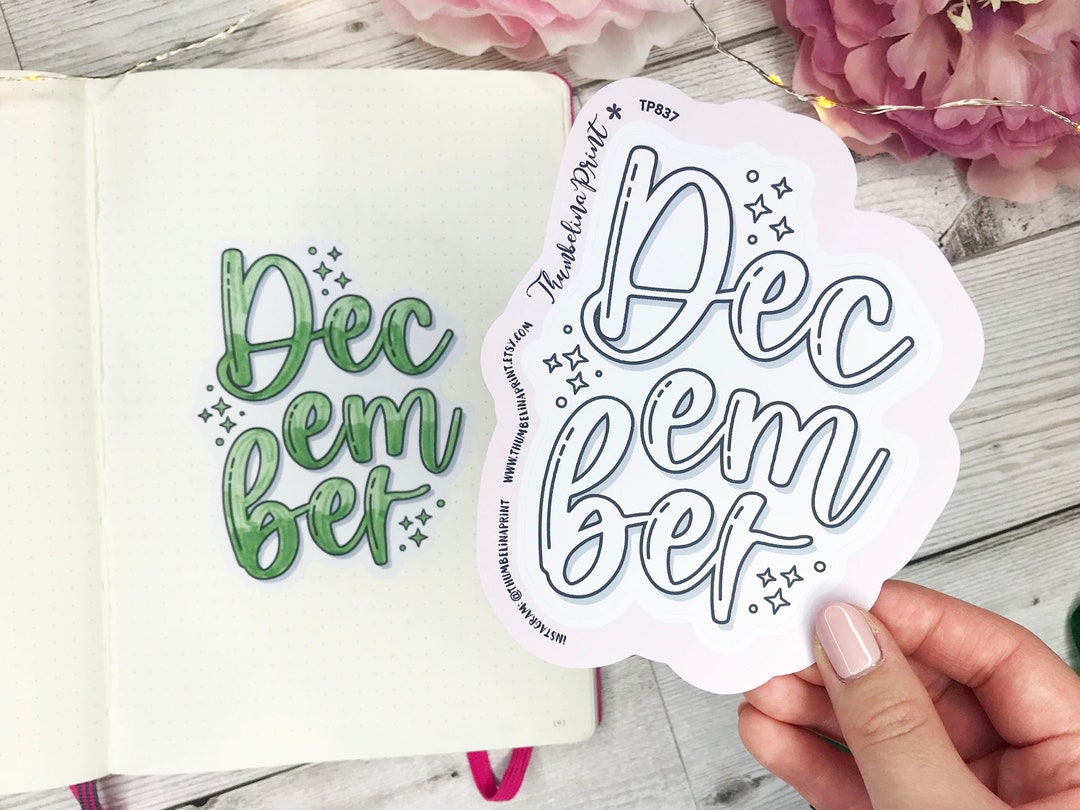 Dec
em
ber
193
TP837
Thumbelina Print *
Dec
em
ber
WWW.THUMBELINAPRINT.ETSY.COM
INSTAGRAM: @THUMBELINAPRINT